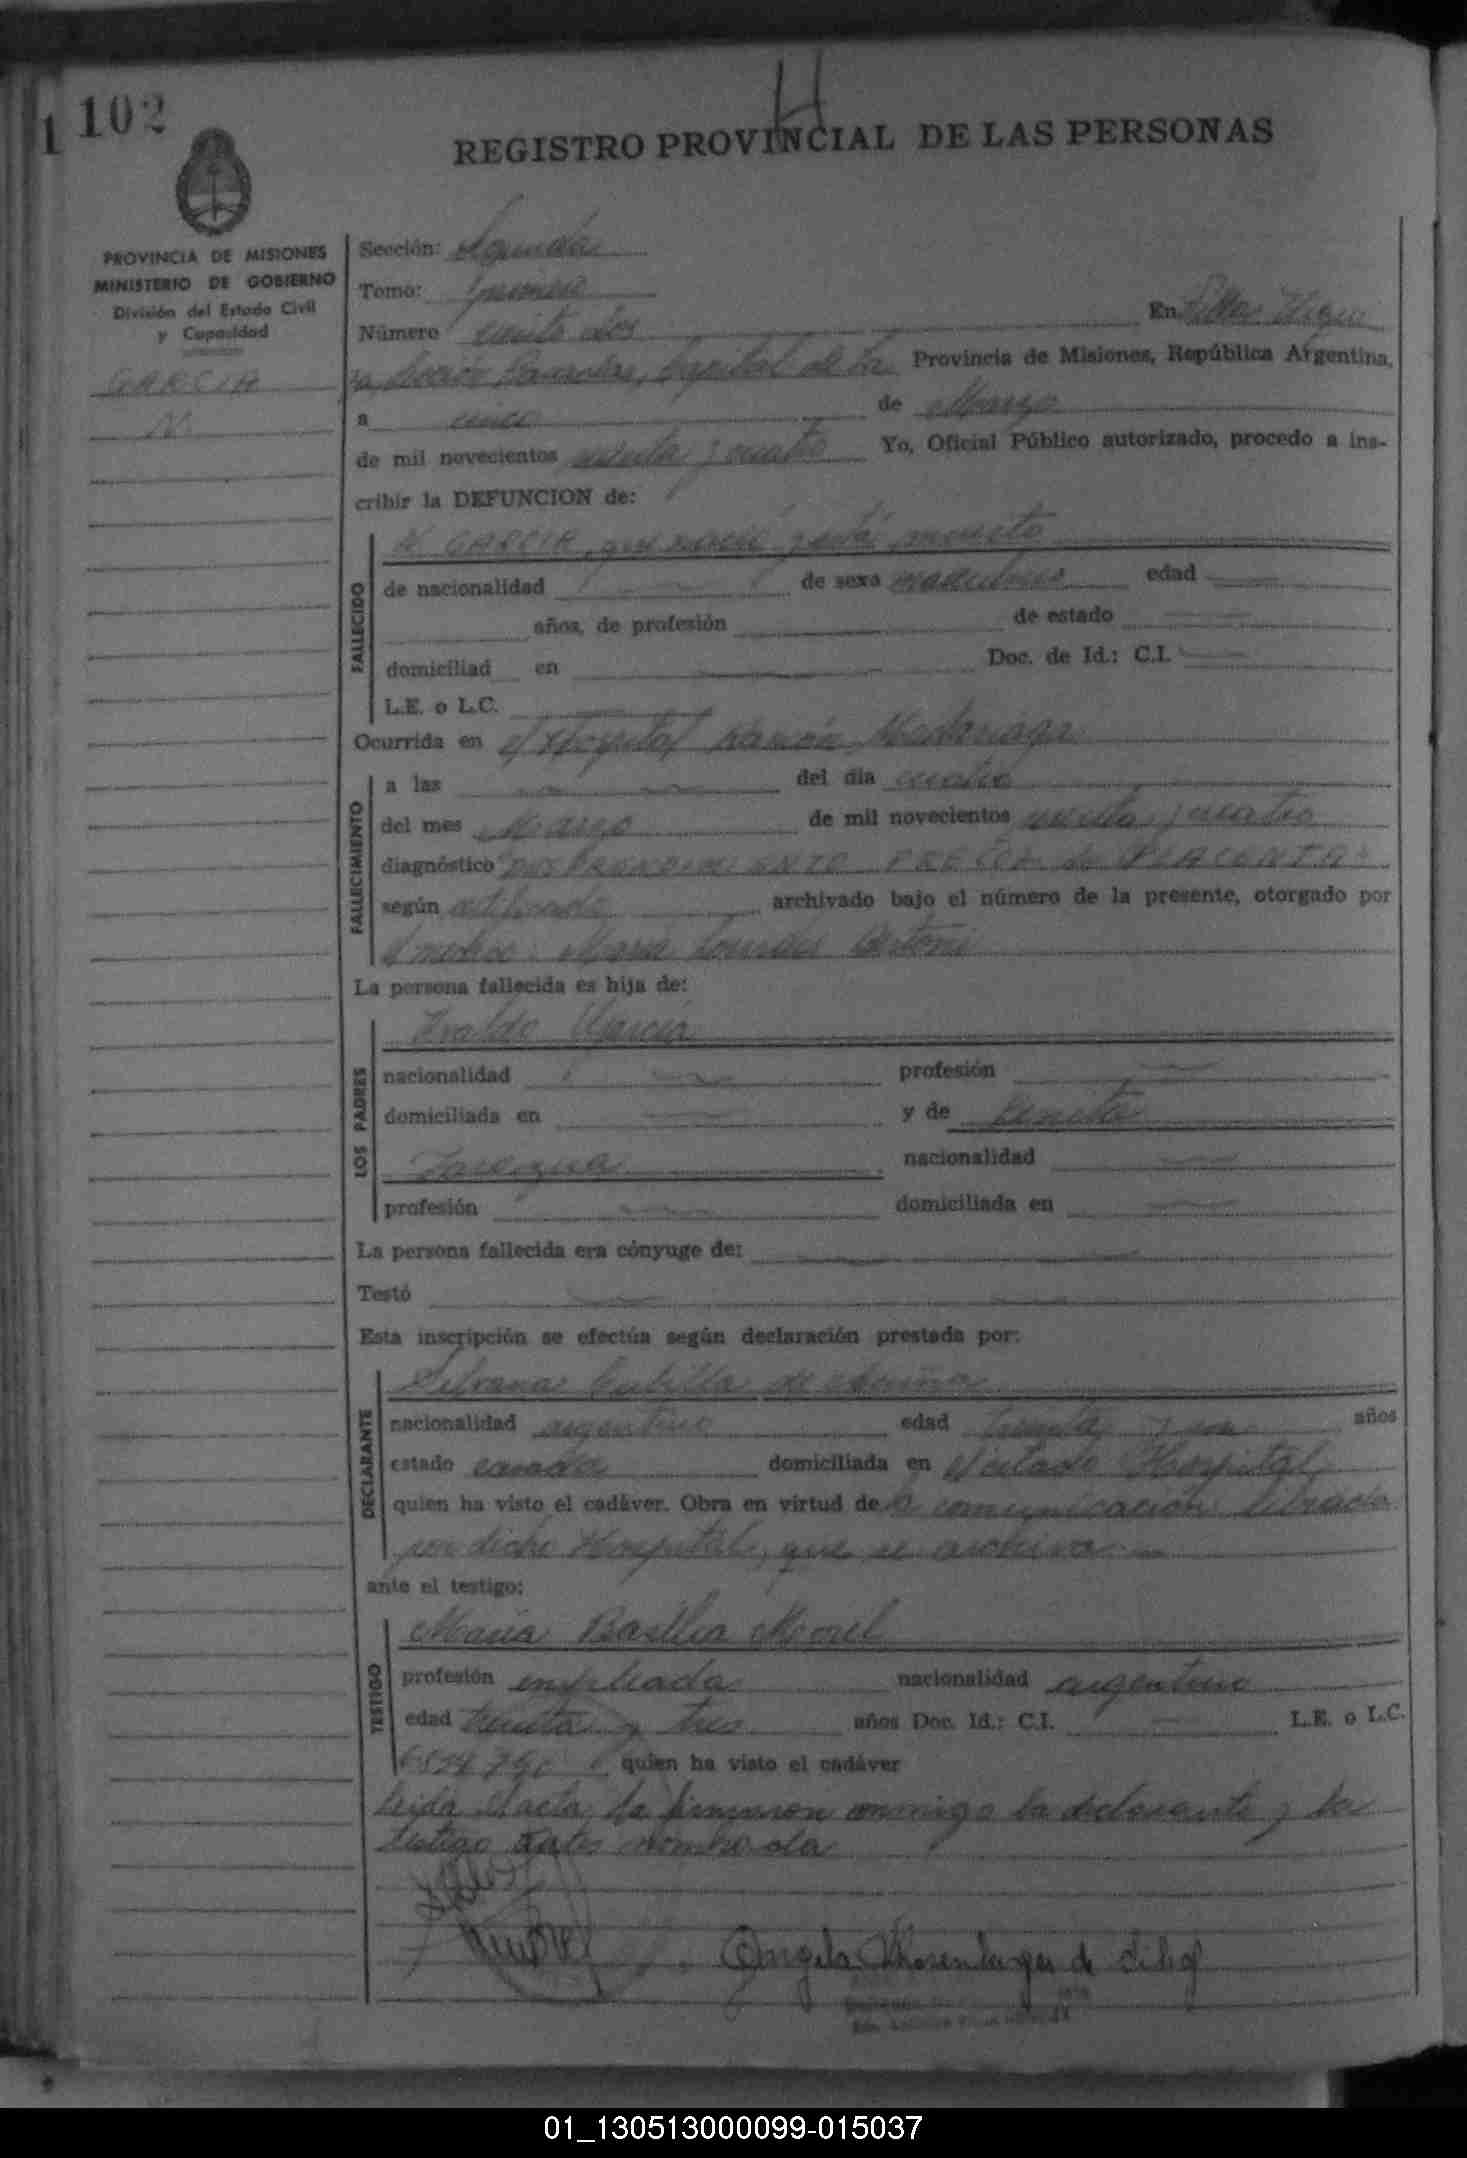 H
1 102
REGISTRO PROVINCIAL DE LAS PERSONAS
PROVINCIA DE MISIONES
MINISTERIO DE GOBIERNO
División del Estado Civil
y Capacidad
GARCIA
N.
Sección: Segunda
Tomo: Primero
Número ciento dos
En Villa Urquiza
Sección Posadas, Capital de la Provincia de Misiones, República Argentina,
a cinco de Marzo
de mil novecientos setenta y cuatro Yo, Oficial Público autorizado, procedo a ins-
cribir la DEFUNCION de:
N GARCIA, que nació y está muerto
FALLECIDO
de nacionalidad de sexo masculino edad
años, de profesión de estado
domiciliad en Doc. de Id.: C.I.
L.E. o L.C.
Ocurrida en el Hospital Ramón Madariaga
FALLECIMIENTO
a las del día cuatro
del mes Marzo de mil novecientos setenta y cuatro
diagnóstico DESPRENDIMIENTO PRECOZ de PLACENTA
según certificado archivado bajo el número de la presente, otorgado por
el médico: María Lourdes Bertoni
La persona fallecida es hija de:
LOS PADRES
García
nacionalidad profesión
domiciliada en y de Benita
nacionalidad
profesión domiciliada en
La persona fallecida era cónyuge de:
Testó
Esta inscripción se efectúa según declaración prestada por:
DECLARANTE
Silvana Cubilla de Acuña
nacionalidad argentino edad treinta y un años
estado casada domiciliada en el citado Hospital
quien ha visto el cadáver. Obra en virtud de la comunicación librada
por dicho Hospital, que se archiva
ante el testigo:
TESTIGO
María Basilia Morel
profesión empleada nacionalidad argentino
edad treinta y tres años Doc. Id.: C.I. L.E. o L.C.
quien ha visto el cadáver
Leida el acta, la firmaron conmigo la declarante y la
testigo antes nombrada
Angela de
01_130513000099-015037